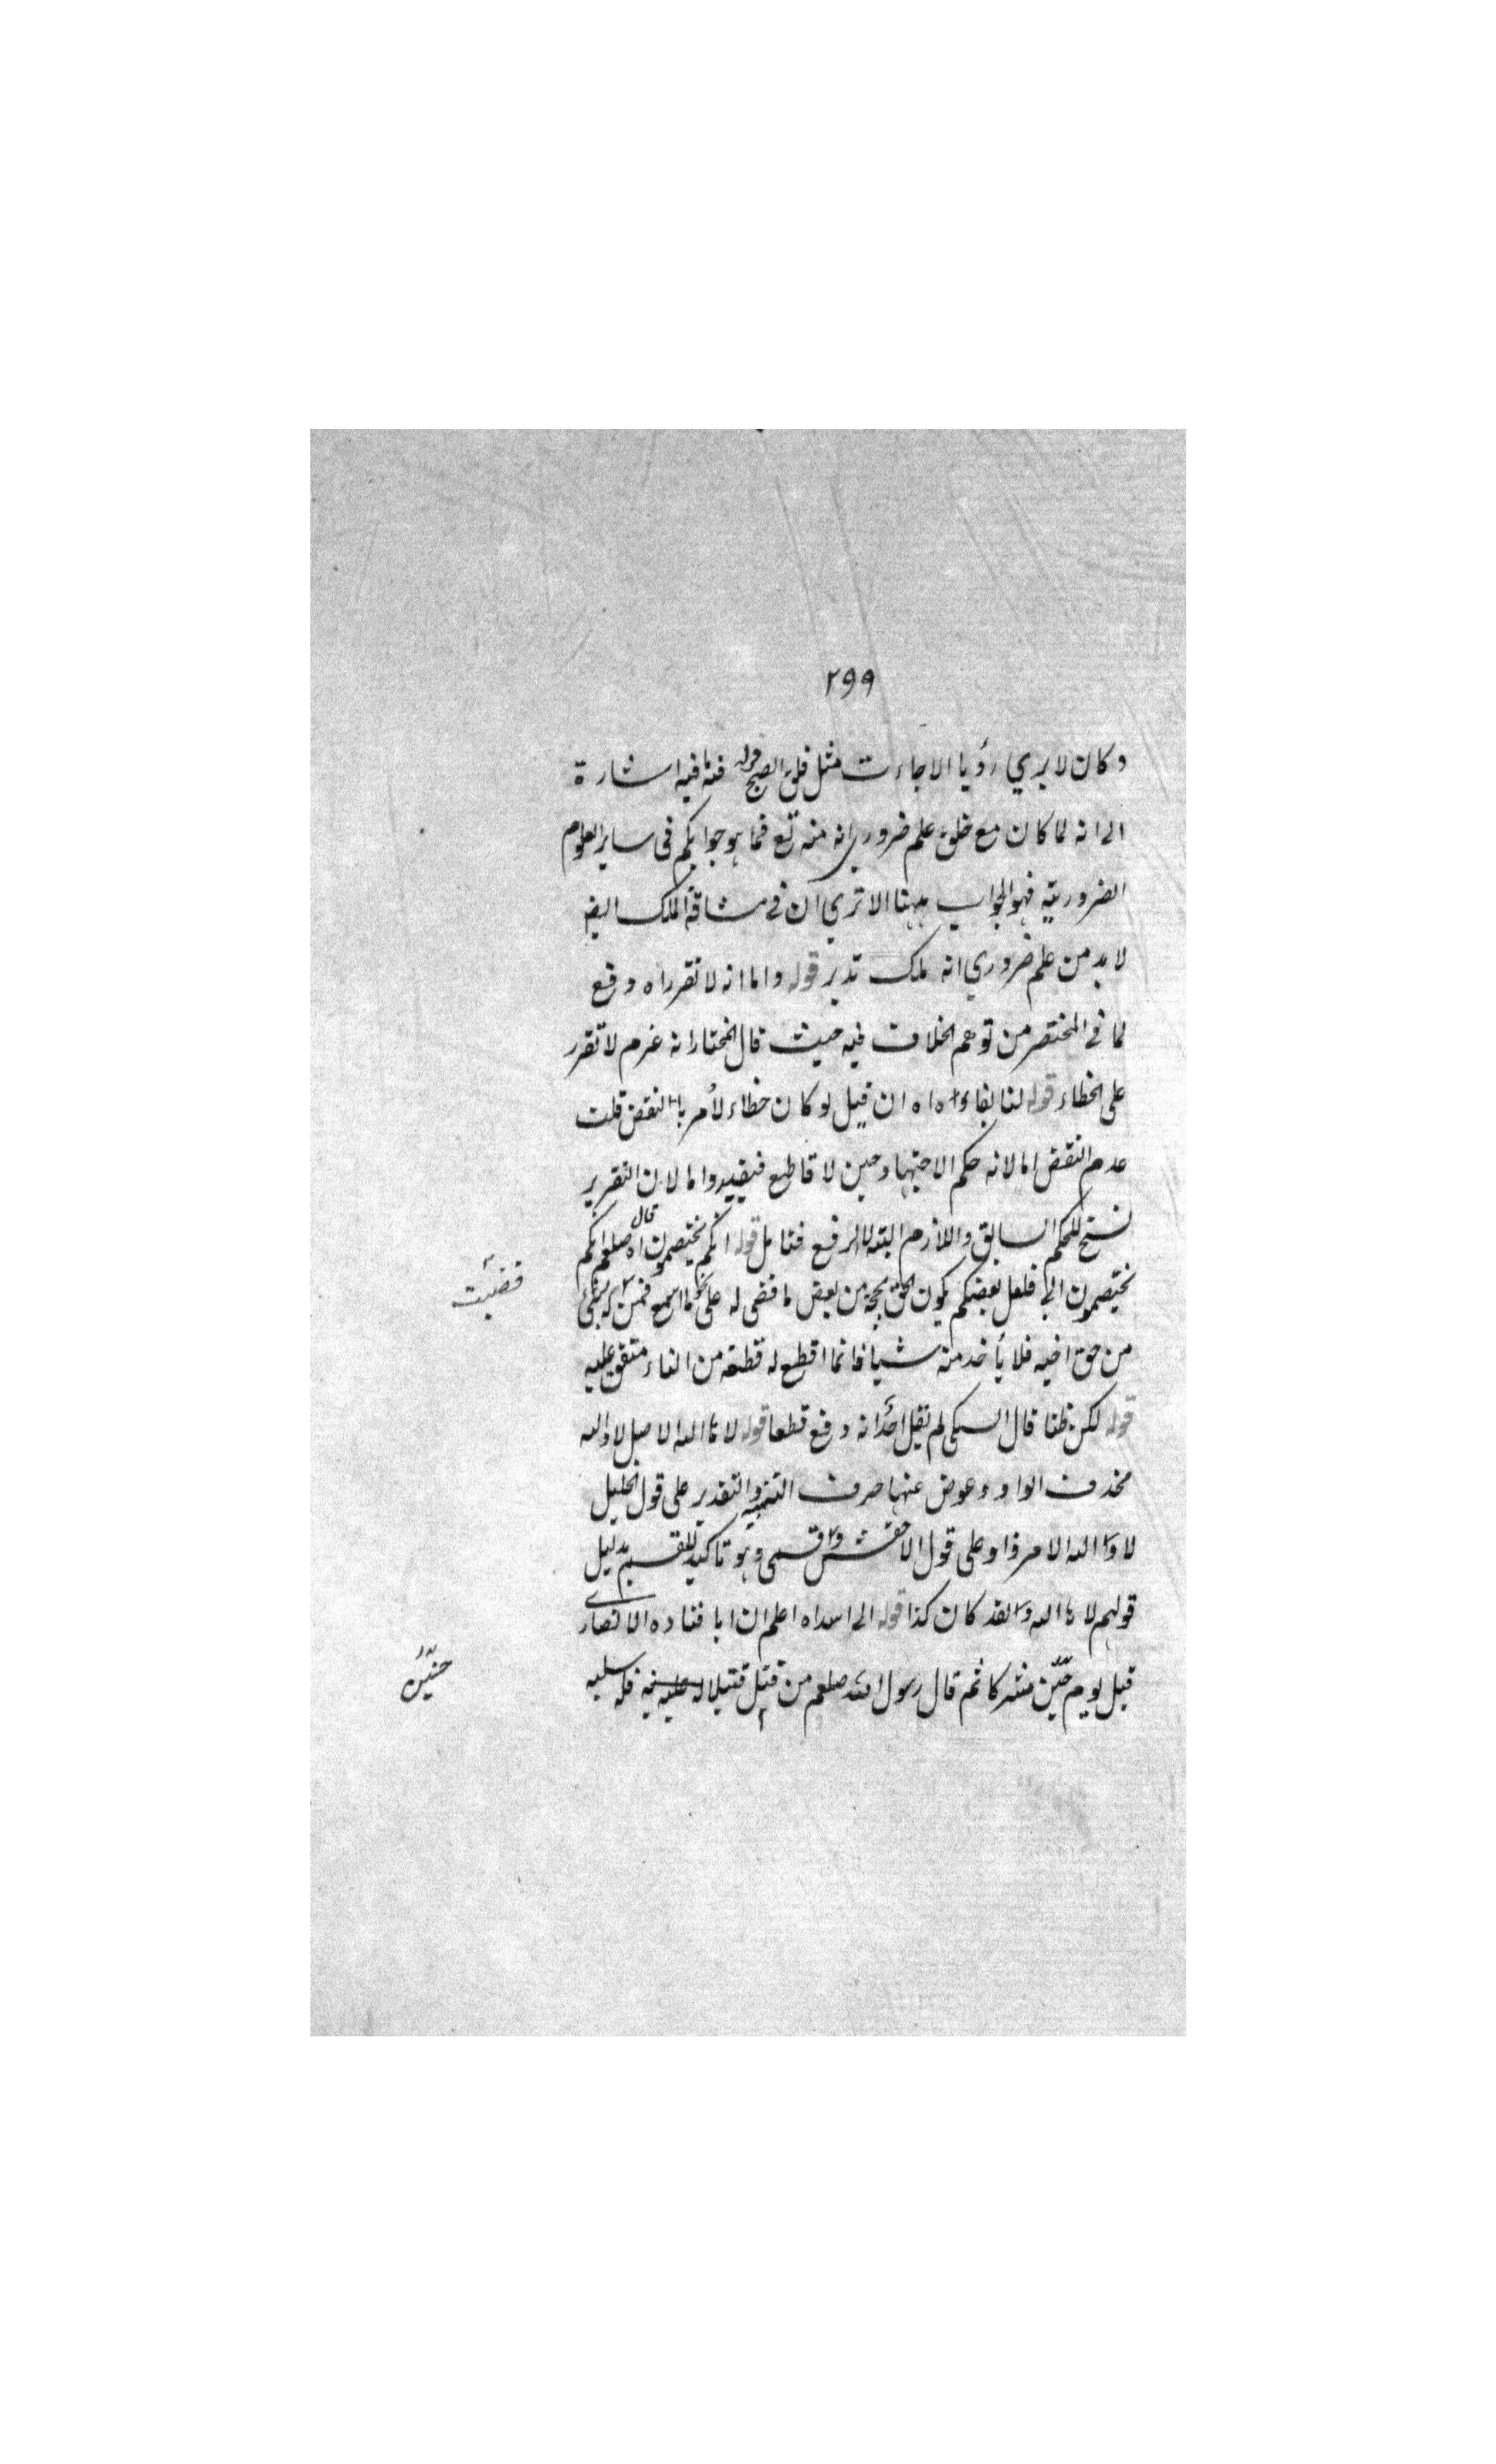 ٢٩٩
وكان لا يري رؤيا الا جاءت مثل فلق الصبح قوله فتا فيه اشارة
الى انه لما كان مع خلق علم ضروري انه منه تع فما هو جوابكم فى ساير العلوم
الضرورية فهو الجواب ههنا الا تري ان في مشافة الملك ايضا
لا بد من علم ضروري انه ملك قوله واما انه لا تقرر اه دفع
لما في المختصر من توهم الخلاف فيه حيث قال المختار انه لا تقرر
على الخطاء قوله لنا بقاؤه اه ان قيل لو كان خطاء لأمر بالنقض قلت
عدم النقض اما لانه حكم الاجتهاد حين لا قاطع فيفيد واما لان التقرير
نسخ للحكم السابق واللازم البتة الرفع فتامل قوله انكم تختصمون اه قال صلعم انكم
تختصمون الي فلعل بعضكم يكون الحق بحجة من بعض فاقضى له على نحو ما اسمع فمن له بشئ
قضيت
من حق اخيه فلا يأخد منه شيا فانما اقطع له قطعة من النار متفق عليه
قوله لكن ظنا قال السبكى لم نقل احدا انه دفع قطعا قوله لا ها الله الاصل لا والله
فحذف الواو وعوض عنها حرف التنبيه والتقدير على قول الخليل
لا ها الله الامر ذا وعلى قول الاخفش ذا قسمى وهو تاكيد للقسم بدليل
قولهم لا ها الله ذا لقد كان كذا قوله الى اسد اه اعلم ان ابا قتادة الانصارى
قبل يوم حنين مشركا ثم قال رسول الله صلعم من قتل قتيلا له عليه بينة فله سلبه
حنين